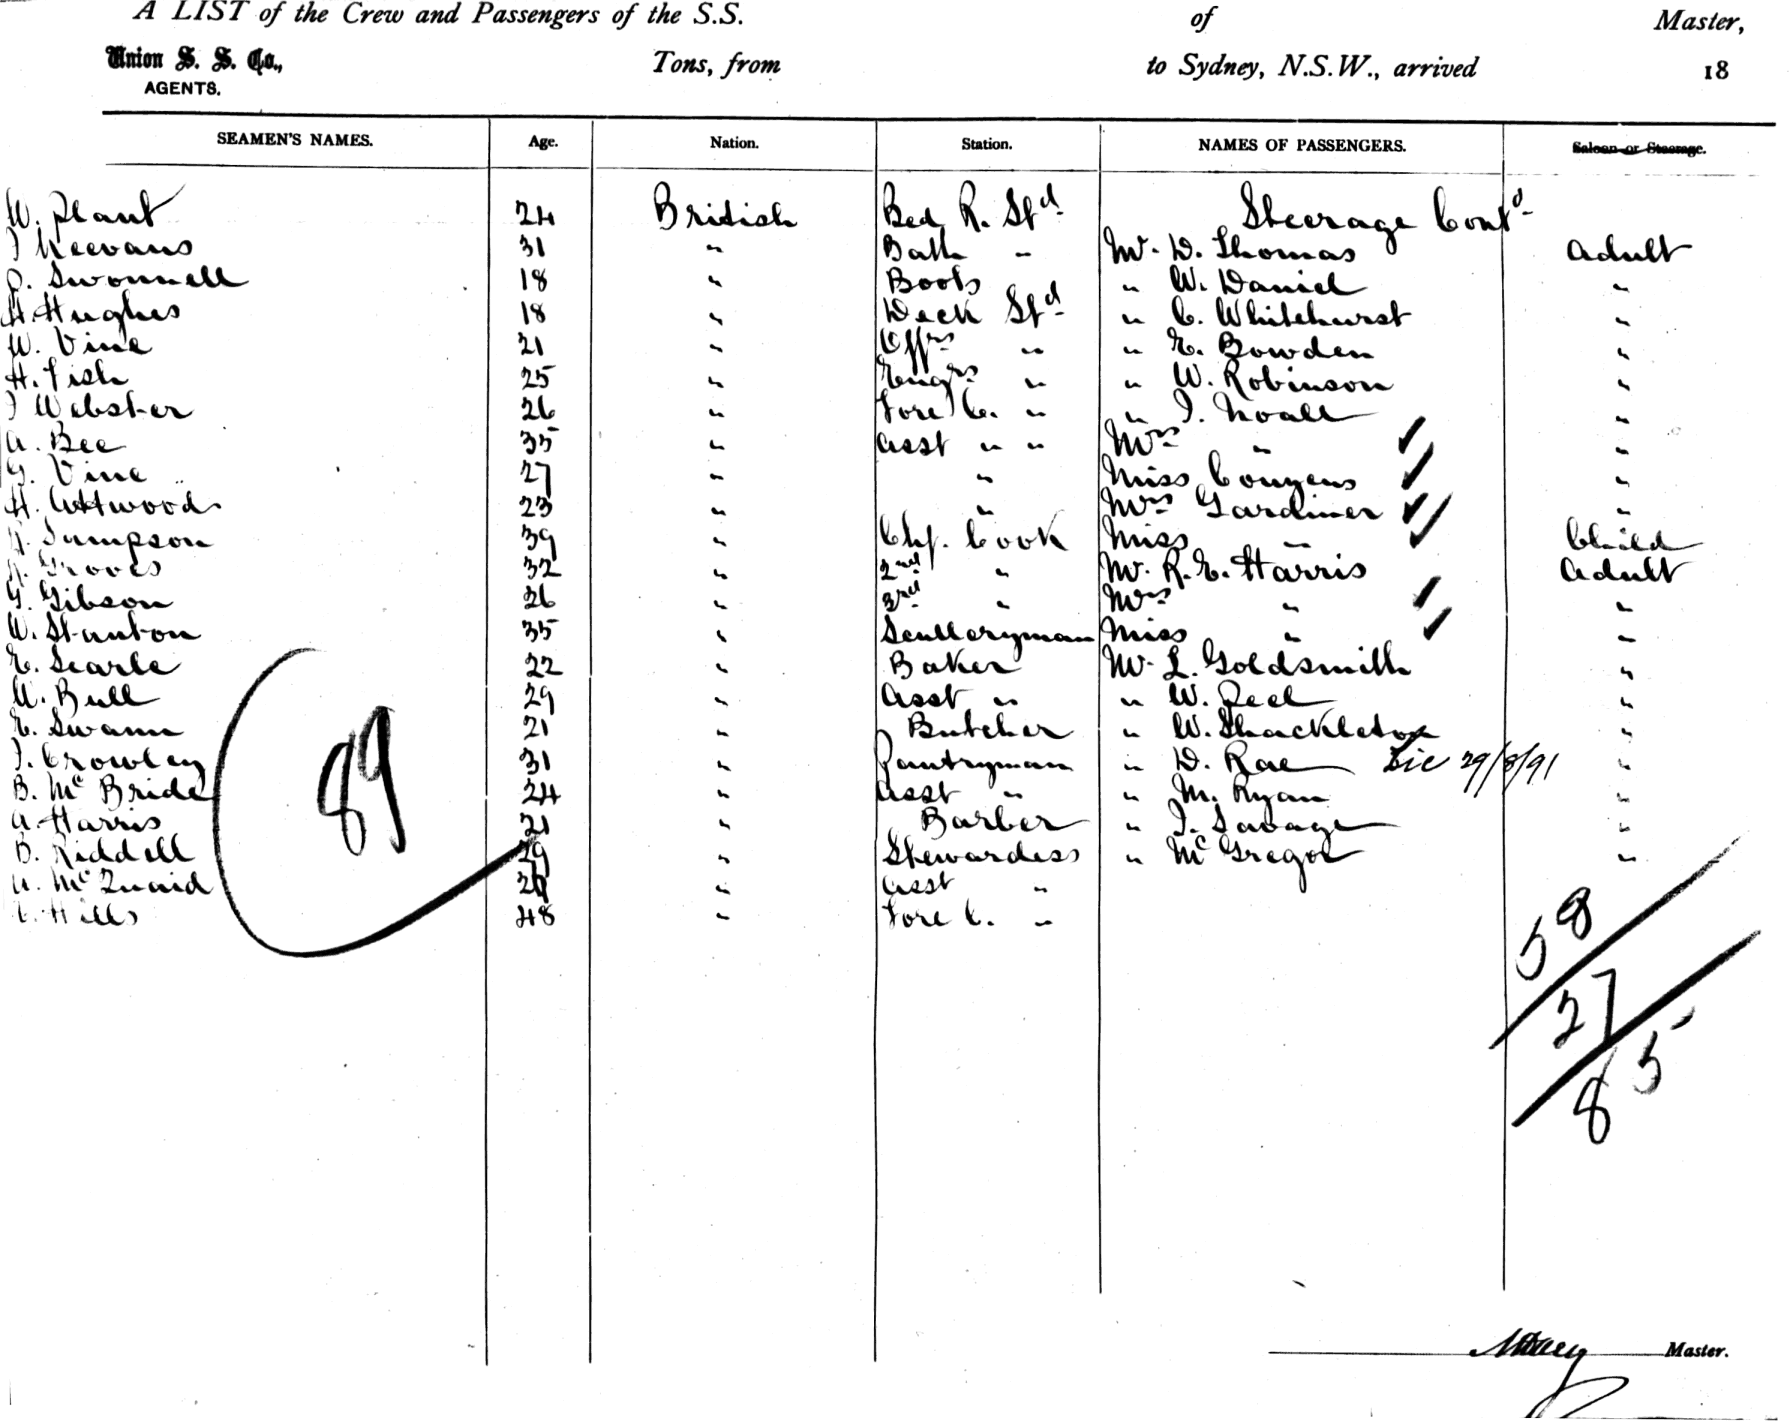 A LIST of the Crew and Passengers of the S.S. of Master,
Union S. S. Co., Tons, from to Sydney, N.S.W., arrived 18
AGENTS.
SEAMEN'S NAMES. Age. Nation. Station. NAMES OF PASSENGERS. Saloon or Steerage.
W. Plant 24 British Bed R. Std Steerage Contd
Keevans 31 " Bath " Mr. D. Thomas Adult
Swonnell 18 " Boots " W. Daniel "
H. Hughes 18 " Deck Std " C. Whitehurst "
W. Vine 21 " Offrs " " E. Bowden "
H. Fish 25 " Engrs " " W. Robinson "
J Webster 26 " Fore C. " " J. Noall "
A. Bee 35 " Asst " " Mrs " "
G. Vine 27 " " Miss Couzens "
H. Attwood 23 " " Mrs Gardiner "
Simpson 39 " Chf. Cook Miss " Child
Groves 32 " 2nd " Mr. R. E. Harris Adult
G. Gibson 26 " 3rd " Mrs " "
W. Stanton 35 " Sculleryman Miss " "
E. Searle 22 " Baker Mr. L. Goldsmith "
Bull 29 " Asst " " W. Peel "
E. Swann 21 " Butcher " W. Shackleton "
J. Crowley 31 " Pantryman " D. Rae 29/8/91 "
B. McBride 24 " Asst " " M. Ryan "
A. Harris 21 " Barber " J. Savage "
B. Riddell 29 " Stewardess " McGregor "
McQuaid " Asst "
Hills 48 " Fore C. "
89
58
27
85
Master.